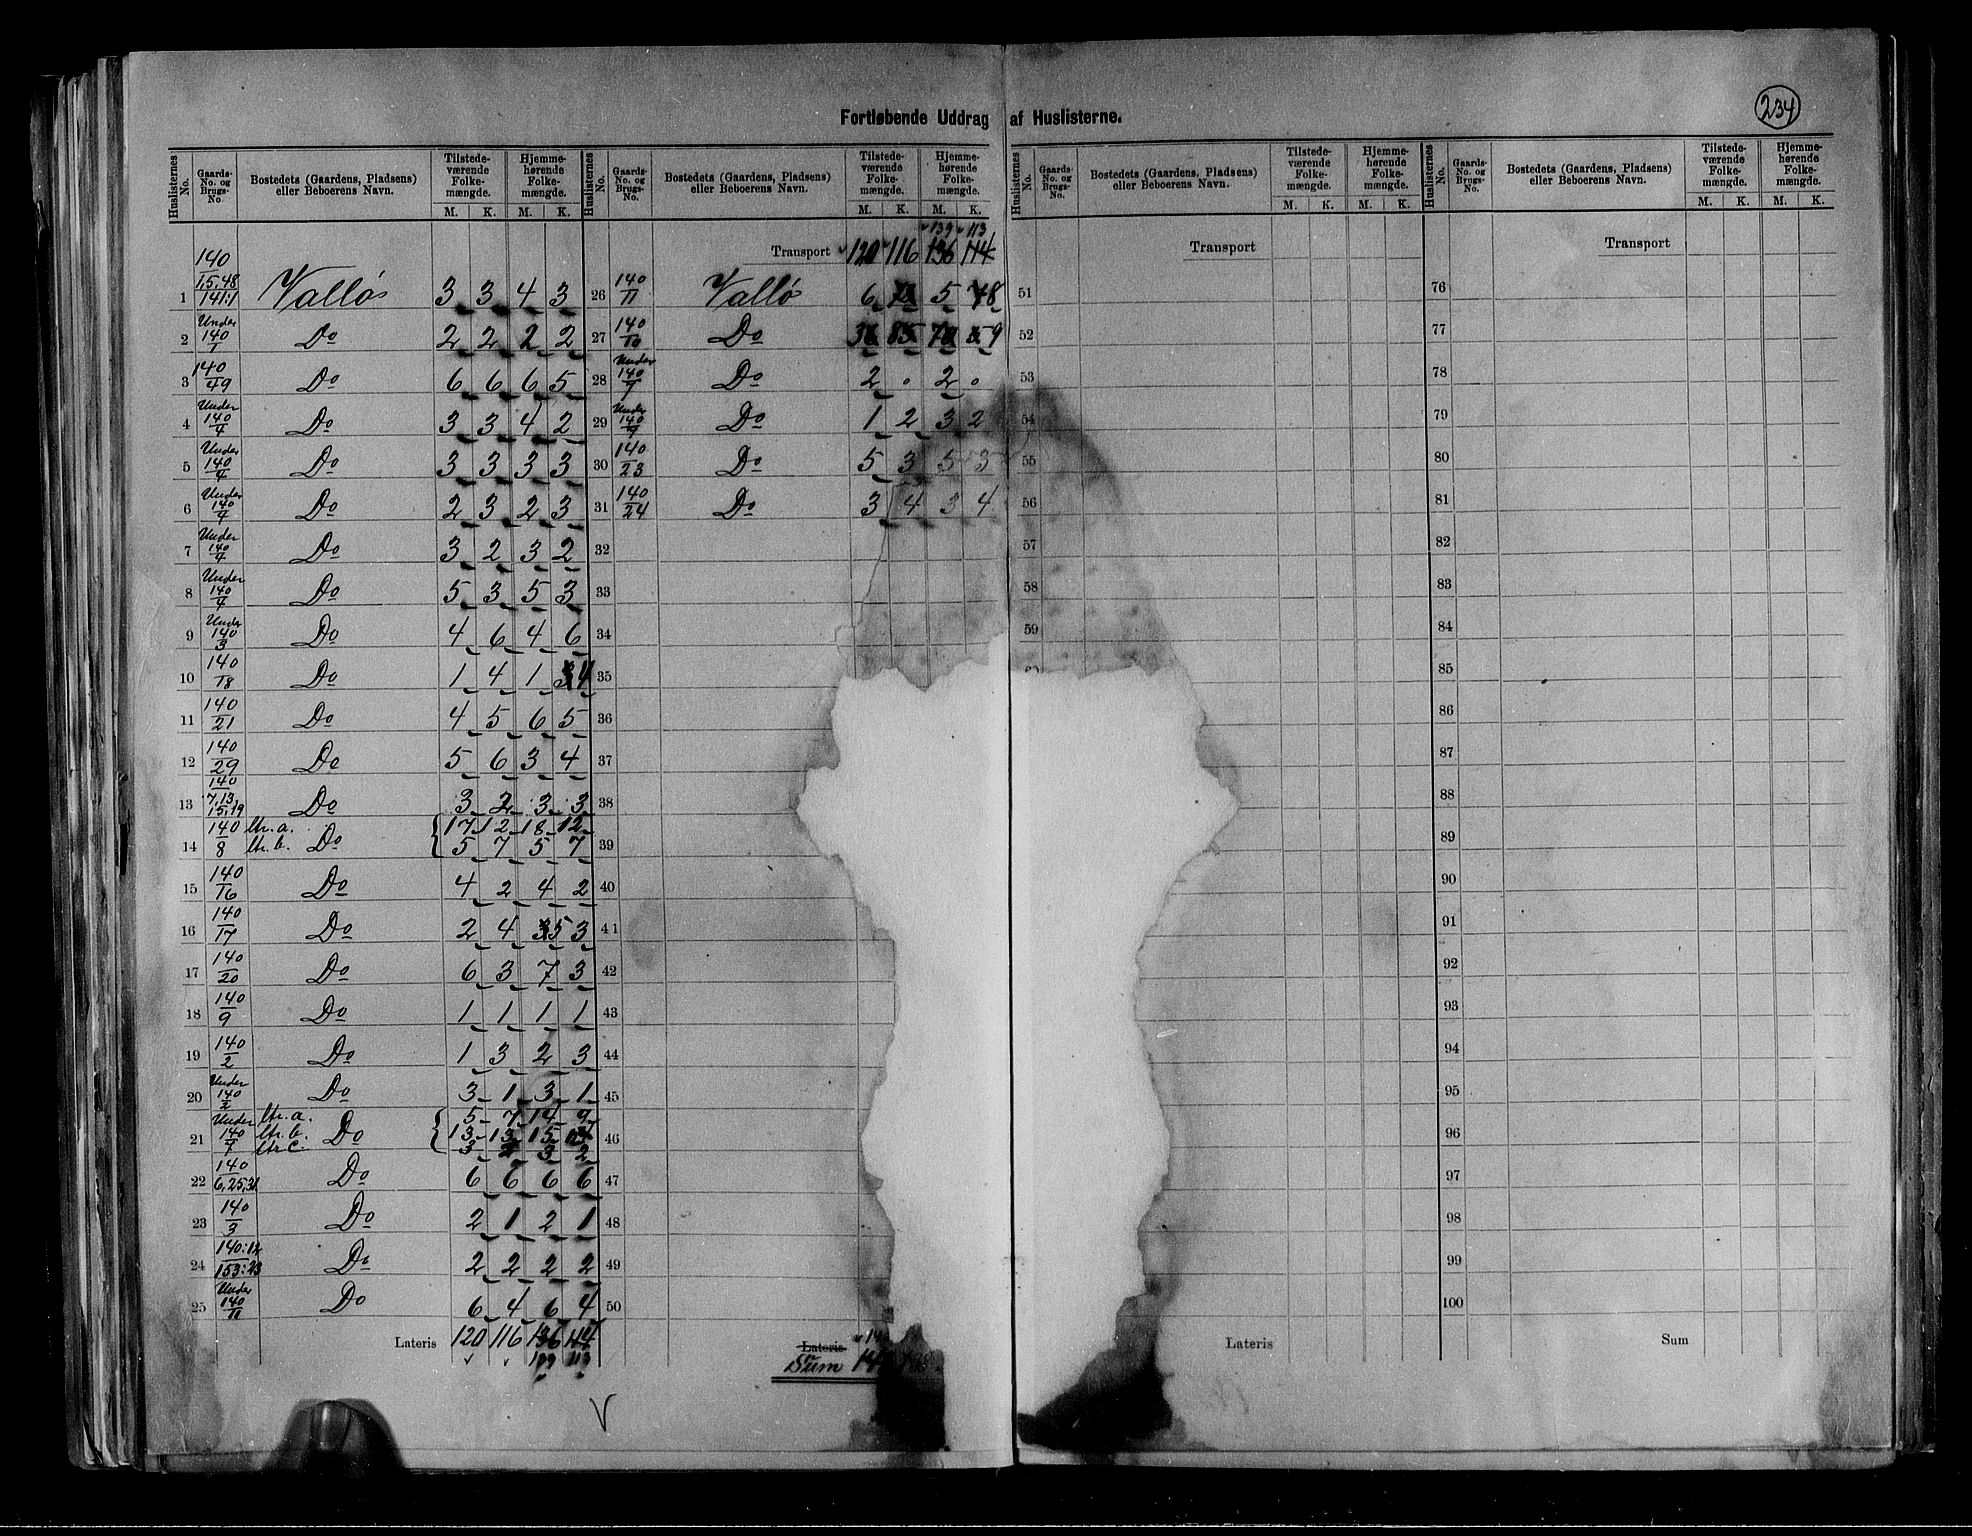 Fortløbende Uddrag af Huslisterne.
234
Huslisternes No. | Gaards-No. og Brugs-No. | Bostedets (Gaardens, Pladsens) eller Beboerens Navn. | Tilstedeværende Folkemængde. M. K. | Hjemmehørende Folkemængde. M. K.
1 140/1,5,48 141:1 Vallø 3 3 4 3
2 Under 140/1 Do 2 2 2 2
3 140/49 Do 6 6 6 5
4 Under 140/4 Do 3 3 4 2
5 Under 140/4 Do 3 3 3 3
6 Under 140/4 Do 2 3 2 3
7 Under 140/4 Do 3 2 3 2
8 Under 140/4 Do 5 3 5 3
9 Under 140/3 Do 4 6 4 6
10 140/18 Do 1 4 1 4
11 140/21 Do 4 5 6 5
12 140/29 Do 5 6 3 4
13 140/7,13,15,19 Do 3 2 3 3
14 140/8 ltr. a. Do 17 12 18 12
ltr. b. 5 7 5 7
15 140/16 Do 4 2 4 2
16 140/17 Do 2 4 5 3
17 140/20 Do 6 3 7 3
18 140/9 Do 1 1 1 1
19 140/2 Do 1 3 2 3
20 Under 140/2 Do 3 1 3 1
21 Under 140/7 ltr. a. Do 5 7 14 9
ltr. b. 13 13 15
ltr. c. 3 3 2
22 140/6,25,31 Do 6 6 6 6
23 140/3 Do 2 1 2 1
24 140:12 153:23 Do 2 2 2 2
25 Under 140/11 Do 6 4 6 4
Lateris 120 116 136 114
139 113
Huslisternes No. | Gaards-No. og Brugs-No. | Bostedets (Gaardens, Pladsens) eller Beboerens Navn. | Tilstedeværende Folkemængde. M. K. | Hjemmehørende Folkemængde. M. K.
139 113
Transport 120 116 136 114
26 140/11 Vallø 6 5 8
27 140/10 Do
28 Under 140/7 Do 2 0 2 0
29 Under 140/9 Do 1 2 3 2
30 140/23 Do 5 3 5 3
31 140/24 Do 3 4 3 4
32
33
34
35
36
37
38
39
40
41
42
43
44
45
46
47
48
49
50
Lateris
Sum
Huslisternes No. | Gaards-No. og Brugs-No. | Bostedets (Gaardens, Pladsens) eller Beboerens Navn. | Tilstedeværende Folkemængde. M. K. | Hjemmehørende Folkemængde. M. K.
Transport
51
52
53
54
55
56
57
58
59
Lateris
Huslisternes No. | Gaards-No. og Brugs-No. | Bostedets (Gaardens, Pladsens) eller Beboerens Navn. | Tilstedeværende Folkemængde. M. K. | Hjemmehørende Folkemængde. M. K.
Transport
76
77
78
79
80
81
82
83
84
85
86
87
88
89
90
91
92
93
94
95
96
97
98
99
100
Sum